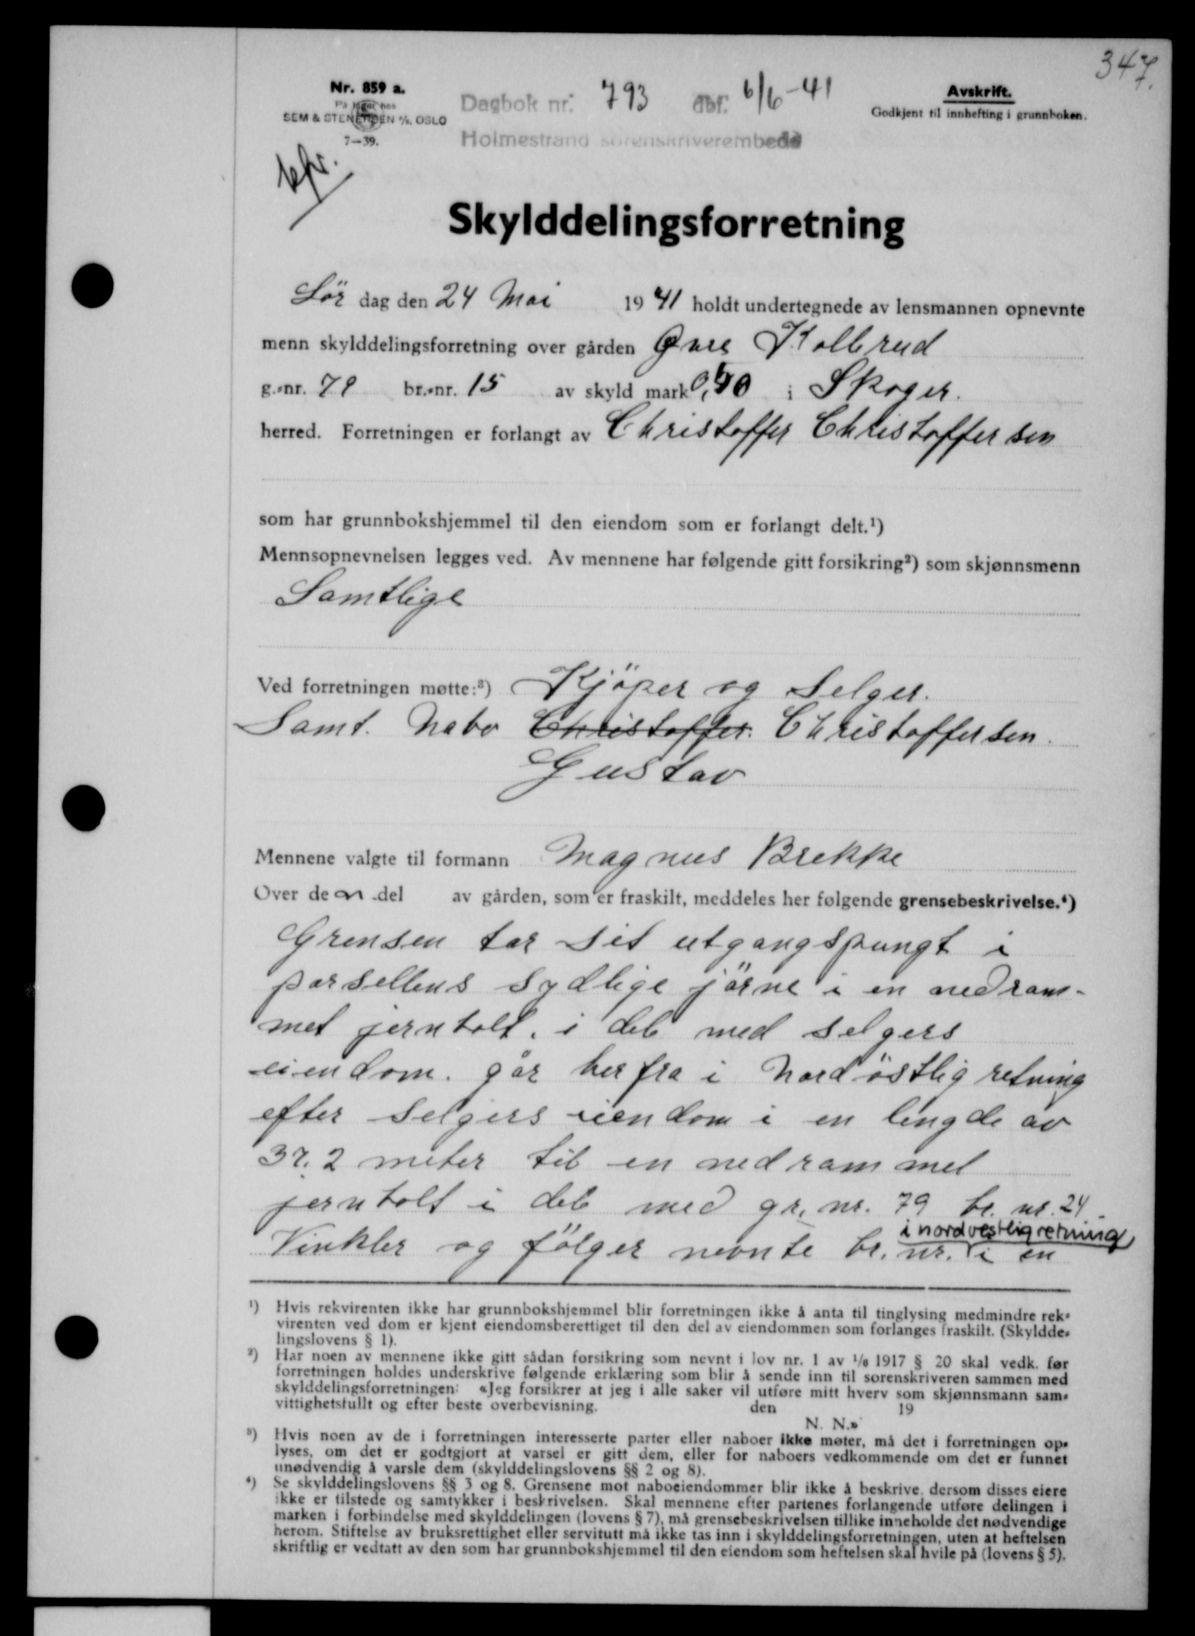 347.
Nr. 859 a.
På lager hos
SEM & STENERSEN A/S. OSLO
7—39.
Dagbok nr. 793 dbf. 6/6-41
Holmestrand sorenskriverembede
Avskrift.
Godkjent til innhefting i grunnboken.
Skylddelingsforretning
Lör dag den 24 Mai 1941 holdt undertegnede av lensmannen opnevnte
menn skylddelingsforretning over gården Øvre Kolbrud
g.-nr. 79 br.-nr. 15 av skyld mark i Skoger.
herred. Forretningen er forlangt av Christoffer Christoffersen
som har grunnbokshjemmel til den eiendom som er forlangt delt.¹)
Mennsopnevnelsen legges ved. Av mennene har følgende gitt forsikring²) som skjønnsmenn
Samtlige
Ved forretningen møtte:³) Kjöper og Selger.
Samt. Nabo Christoffer. Christoffersen.
Gustav
Mennene valgte til formann Magnus Brekke
Over den del av gården, som er fraskilt, meddeles her følgende grensebeskrivelse.⁴)
Grensen tar sit utgangspungt i
parsellens sydlige jörne i en nedram-
met jernbolt. i dele med selgers
eiendom. går herfra i Nordöstlig retning
efter selgers eiendom i en lengde av
37.2 meter til en nedrammet
jernbolt i dele med gr. nr. 79 br. nr. 24.
i nordvestlig retning
Vinkler og fölger nevnte br. nr. i en
¹) Hvis rekvirenten ikke har grunnbokshjemmel blir forretningen ikke å anta til tinglysing medmindre rek-
virenten ved dom er kjent eiendomsberettiget til den del av eiendommen som forlanges fraskilt. (Skyldde-
lingslovens § 1).
²) Har noen av mennene ikke gitt sådan forsikring som nevnt i lov nr. 1 av 1/6 1917 § 20 skal vedk. før
forretningen holdes underskrive følgende erklæring som blir å sende inn til sorenskriveren sammen med
skylddelingsforretningen: «Jeg forsikrer at jeg i alle saker vil utføre mitt hverv som skjønnsmann sam-
vittighetsfullt og efter beste overbevisning. den 19
N. N.»
³) Hvis noen av de i forretningen interesserte parter eller naboer ikke møter, må det i forretningen op-
lyses, om det er godtgjort at varsel er gitt dem, eller for naboers vedkommende om det er funnet
unødvendig å varsle dem (skylddelingslovens §§ 2 og 8).
⁴) Se skylddelingslovens §§ 3 og 8. Grensene mot naboeiendommer blir ikke å beskrive, dersom disses eiere
ikke er tilstede og samtykker i beskrivelsen. Skal mennene efter partenes forlangende utføre delingen i
marken i forbindelse med skylddelingen (lovens § 7), må grensebeskrivelsen tillike inneholde det nødvendige
herom. Stiftelse av bruksrettighet eller servitutt må ikke tas inn i skylddelingsforretningen, uten at heftelsen
skriftlig er vedtatt av den som har grunnbokshjemmel til den eiendom som heftelsen skal hvile på (lovens § 5).